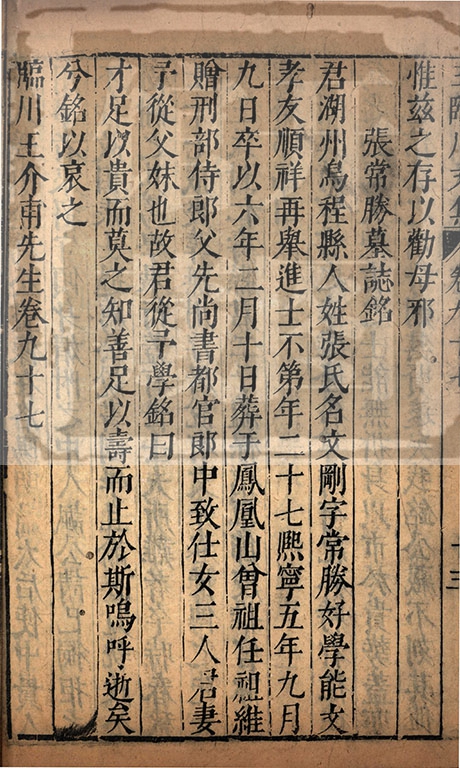 惟茲之存以勸毋邪
張常勝墓誌銘
君湖州烏程縣人姓張氏名文剛字常勝好學能文
孝友順祥再舉進士不第年二十七熙寧五年九月
九日卒以六年二月十日葬于鳳凰山曾祖任祖維
贈刑部侍郎父先尚書都官郎中致仕女三人君妻
予從父妹也故君從予學銘曰
才足以貴而莫之知善足以壽而止於斯嗚呼逝矣
兮銘以哀之
臨川王介甫先生卷九十七